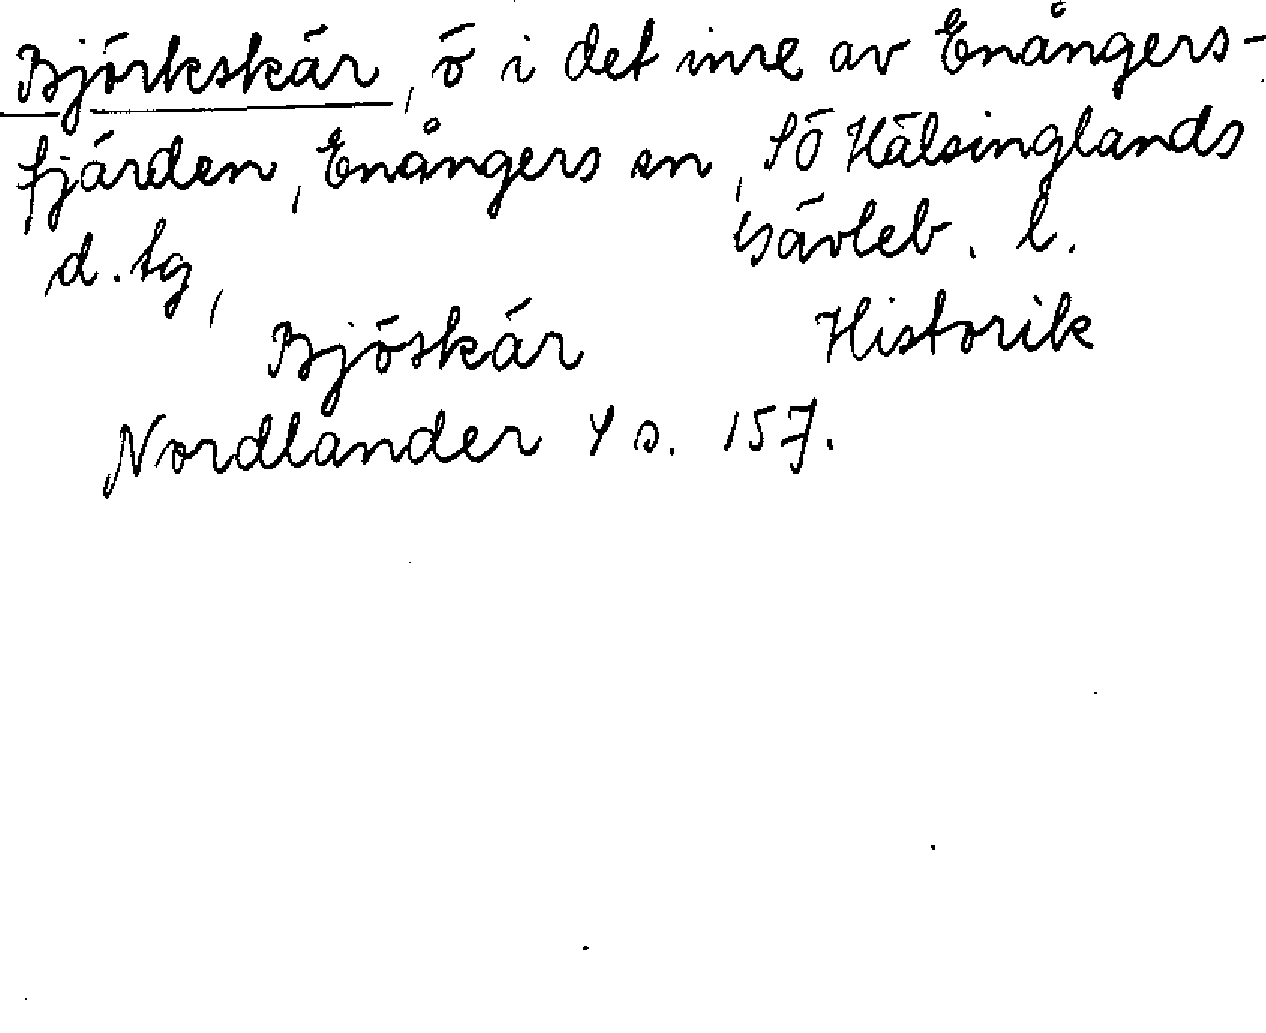 Björkskär, ö i det inre av Enångers-
fjärden, Enångers sn, SÖ Hälsinglands
d.sg, Gävleb. l.
Bjöskär Historik
Nordlander 4 s. 157.